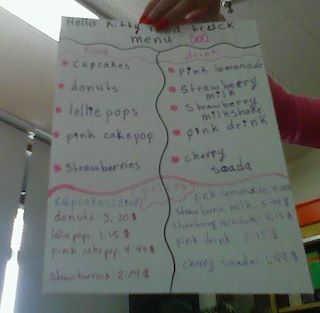 Hello kitty food trelck
menu
food
cupcakes
donuts
lollie pops
pink cake pop
strawberries
drink
pink lemonade
Strawberry
milk
Strawberry
milkshake
pink drink
cherry
soada
prices
cupcakes:
donuts: 3.30$
lollie pops: 1.15$
pink cake pop: 4.45$
strawberries: 2.29$
pink lemonade:
milk: 3.49$
pink drink:
cherry soada: 1.99$